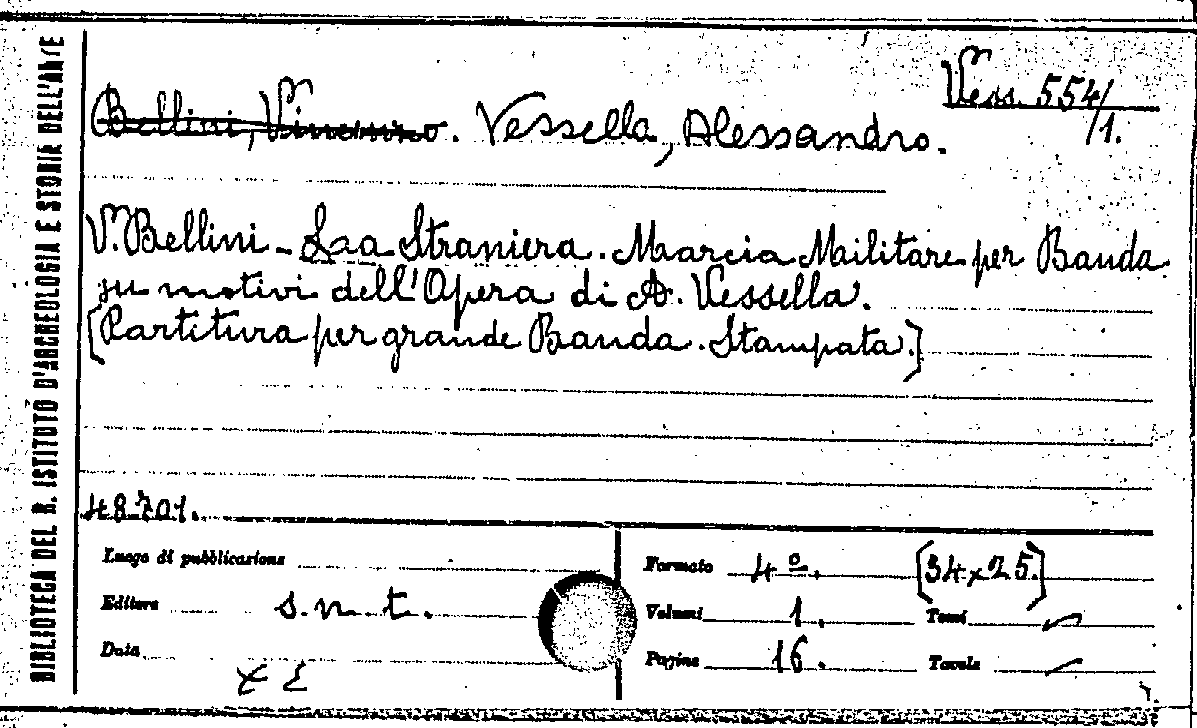 BIBLIOTECA DEL R. ISTITUTO D'ARCHEOLOGIA E STORIA DELL'ARTE
Vess. 554/1.
Bellini, Vincenzo. Vessella, Alessandro.
V. Bellini - La Straniera. Marcia Militare per Banda
su motivi dell'Opera di A. Vessella.
[Partitura per grande Banda. Stampata.]
48701.
Luogo di pubblicazione
Editore s.n.t.
Data
Formato 4º. [34x25.]
Volumi 1. Tomi
Pagine 16. Tavole